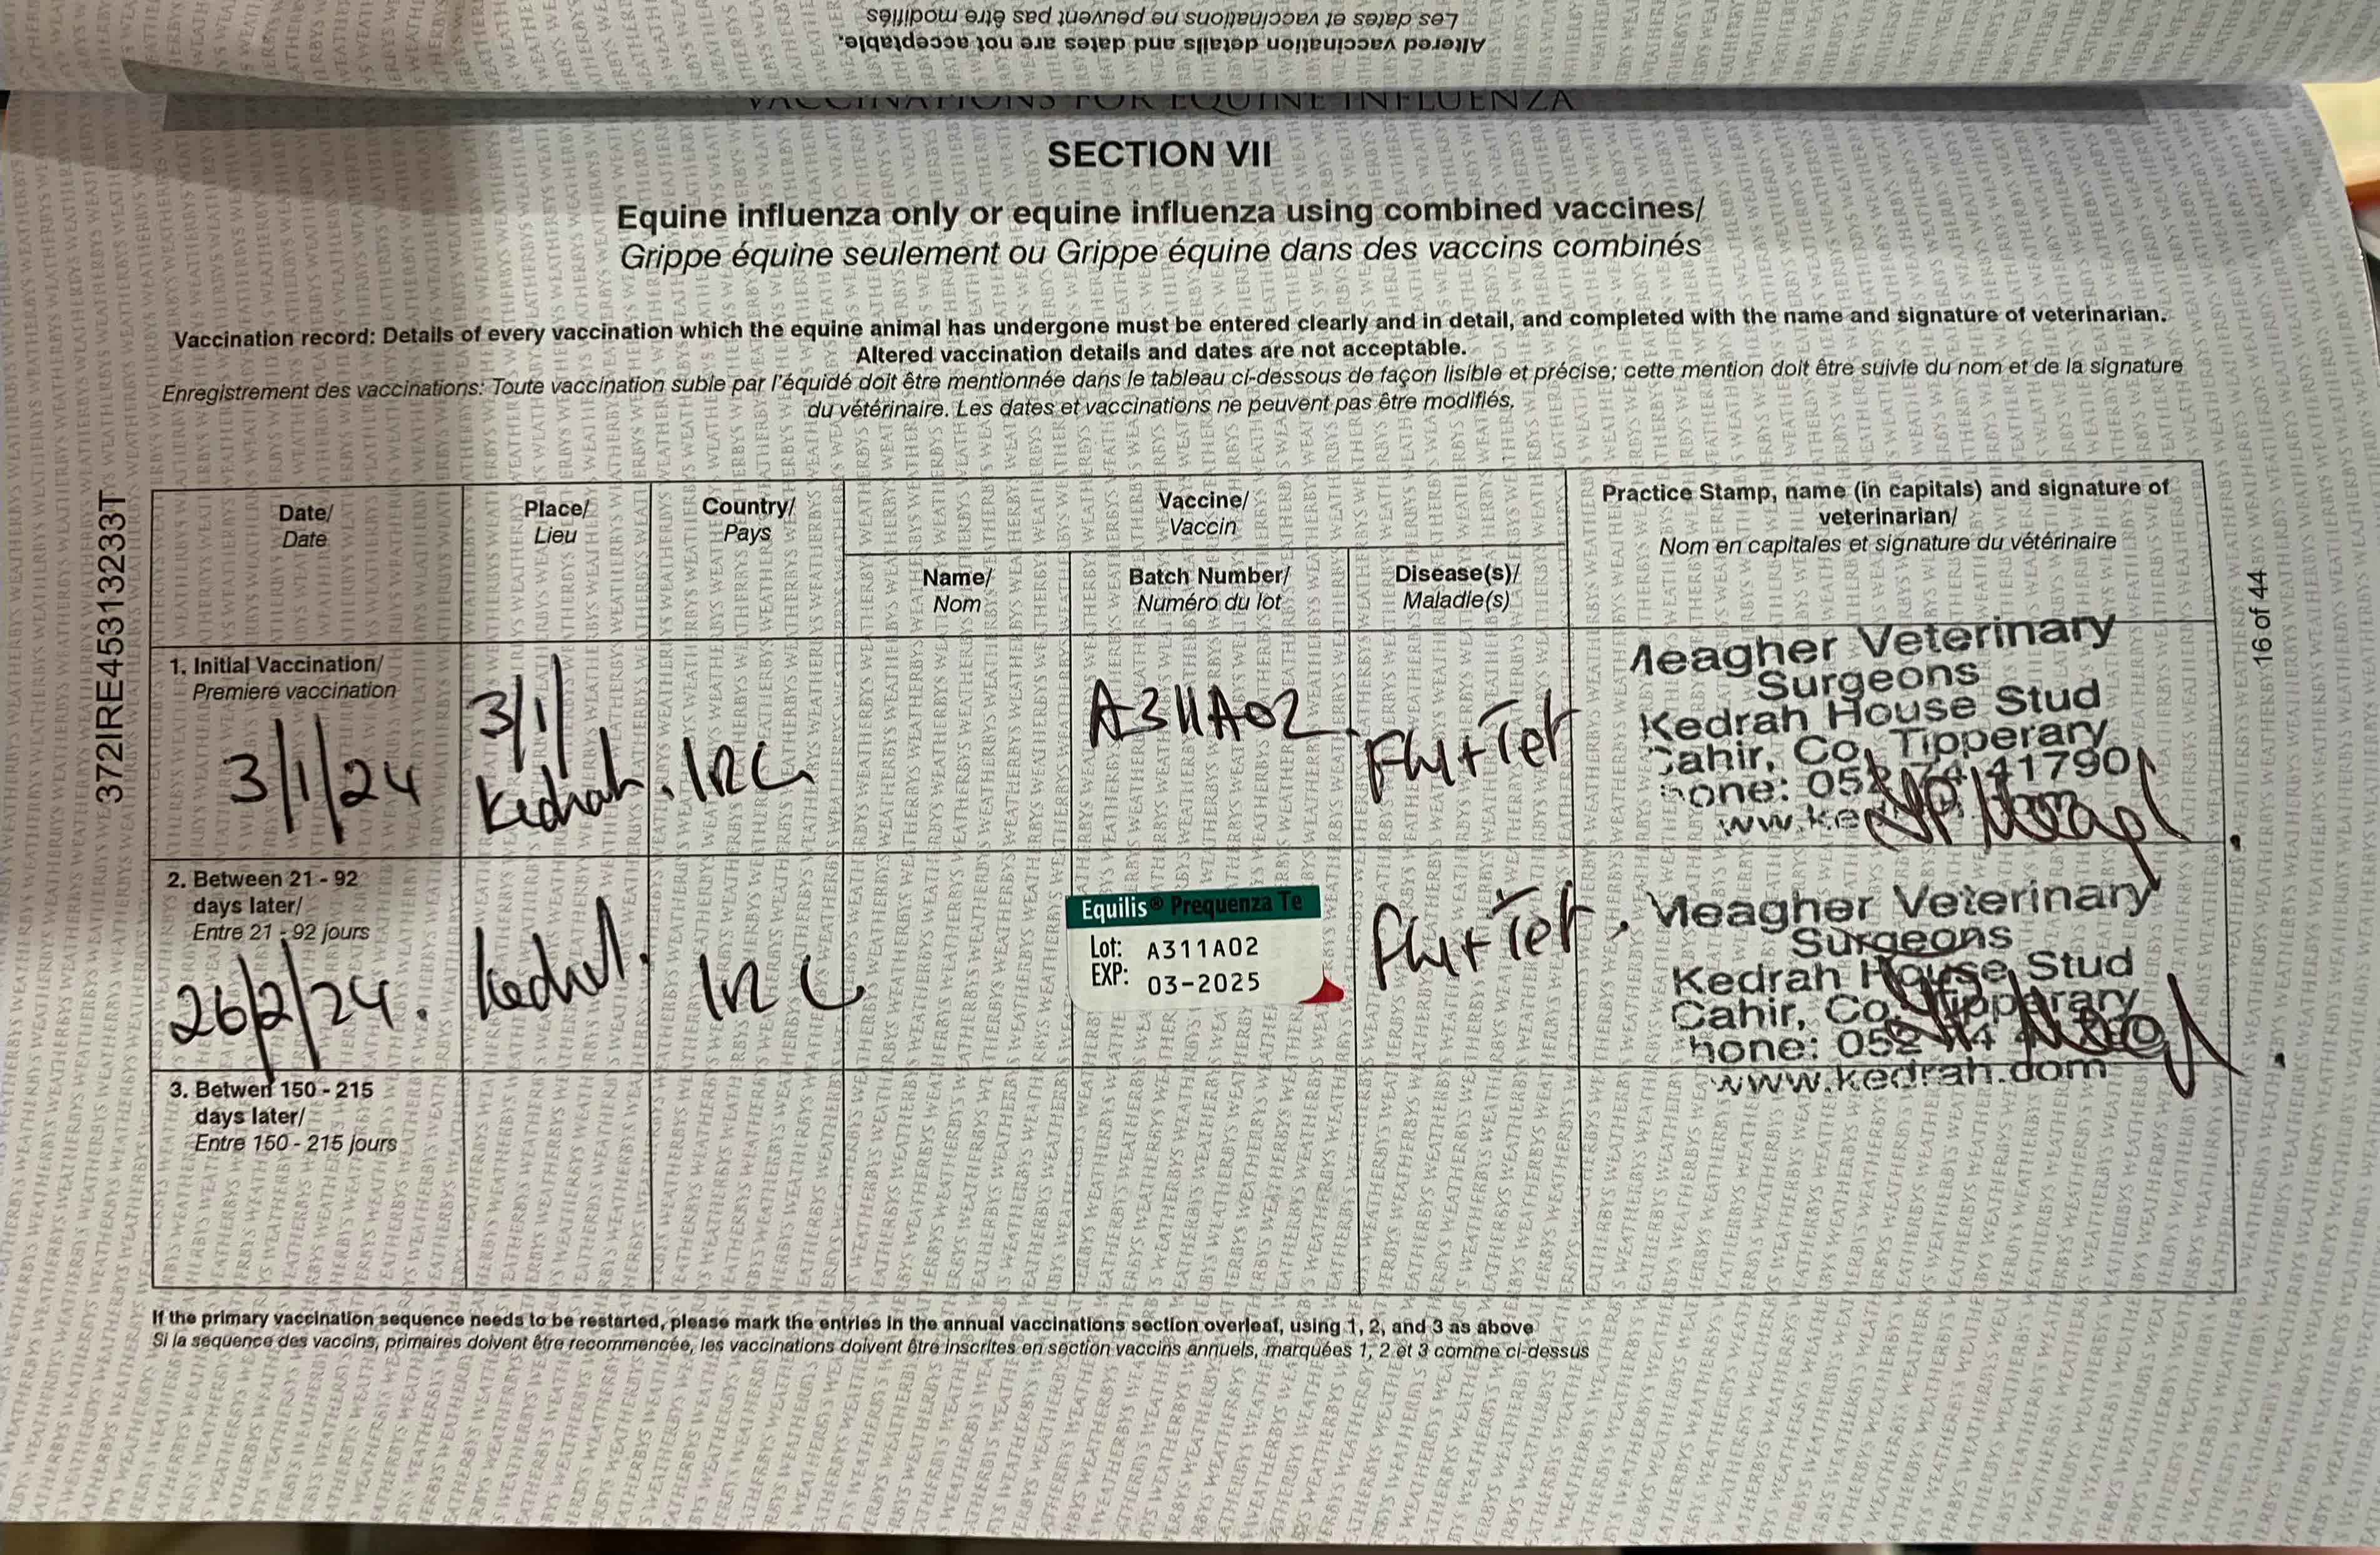 Les dates et vaccinations ne peuvent pas être modifiés
Altered vaccination details and dates are not acceptable.
VACCINATIONS FOR EQUINE INFLUENZA
SECTION VII
Equine influenza only or equine influenza using combined vaccines/
Grippe équine seulement ou Grippe équine dans des vaccins combinés
Vaccination record: Details of every vaccination which the equine animal has undergone must be entered clearly and in detail, and completed with the name and signature of veterinarian.
Altered vaccination details and dates are not acceptable.
Enregistrement des vaccinations: Toute vaccination subie par l'équidé doit être mentionnée dans le tableau ci-dessous de façon lisible et précise; cette mention doit être suivie du nom et de la signature
du vétérinaire. Les dates et vaccinations ne peuvent pas être modifiés.
372IRE45313233T
Date/
Date
Place/
Lieu
Country/
Pays
Vaccine/
Vaccin
Name/
Nom
Batch Number/
Numéro du lot
Disease(s)/
Maladie(s)
Practice Stamp, name (in capitals) and signature of
veterinarian/
Nom en capitales et signature du vétérinaire
1. Initial Vaccination/
Premiere vaccination
3/1/24
3/1/
Kedrah.
IRE
A311A02.
Flu + Tet
Meagher Veterinary
Surgeons
Kedrah House Stud
Cahir, Co. Tipperary
hone: 052 74 41790
www.ked
2. Between 21 - 92
days later/
Entre 21 - 92 jours
26/2/24.
Kedrah.
IRE
Equilis® Prequenza Te
Lot: A311A02
EXP: 03-2025
Flu + Tet.
Meagher Veterinary
Surgeons
Kedrah House Stud
Cahir, Co. Tipperary
hone: 052 74
www.kedrah.com
3. Betwen 150 - 215
days later/
Entre 150 - 215 jours
16 of 44
If the primary vaccination sequence needs to be restarted, please mark the entries in the annual vaccinations section overleaf, using 1, 2, and 3 as above
Si la sequence des vaccins, primaires doivent être recommencée, les vaccinations doivent être inscrites en section vaccins annuels, marquées 1, 2 et 3 comme ci-dessus